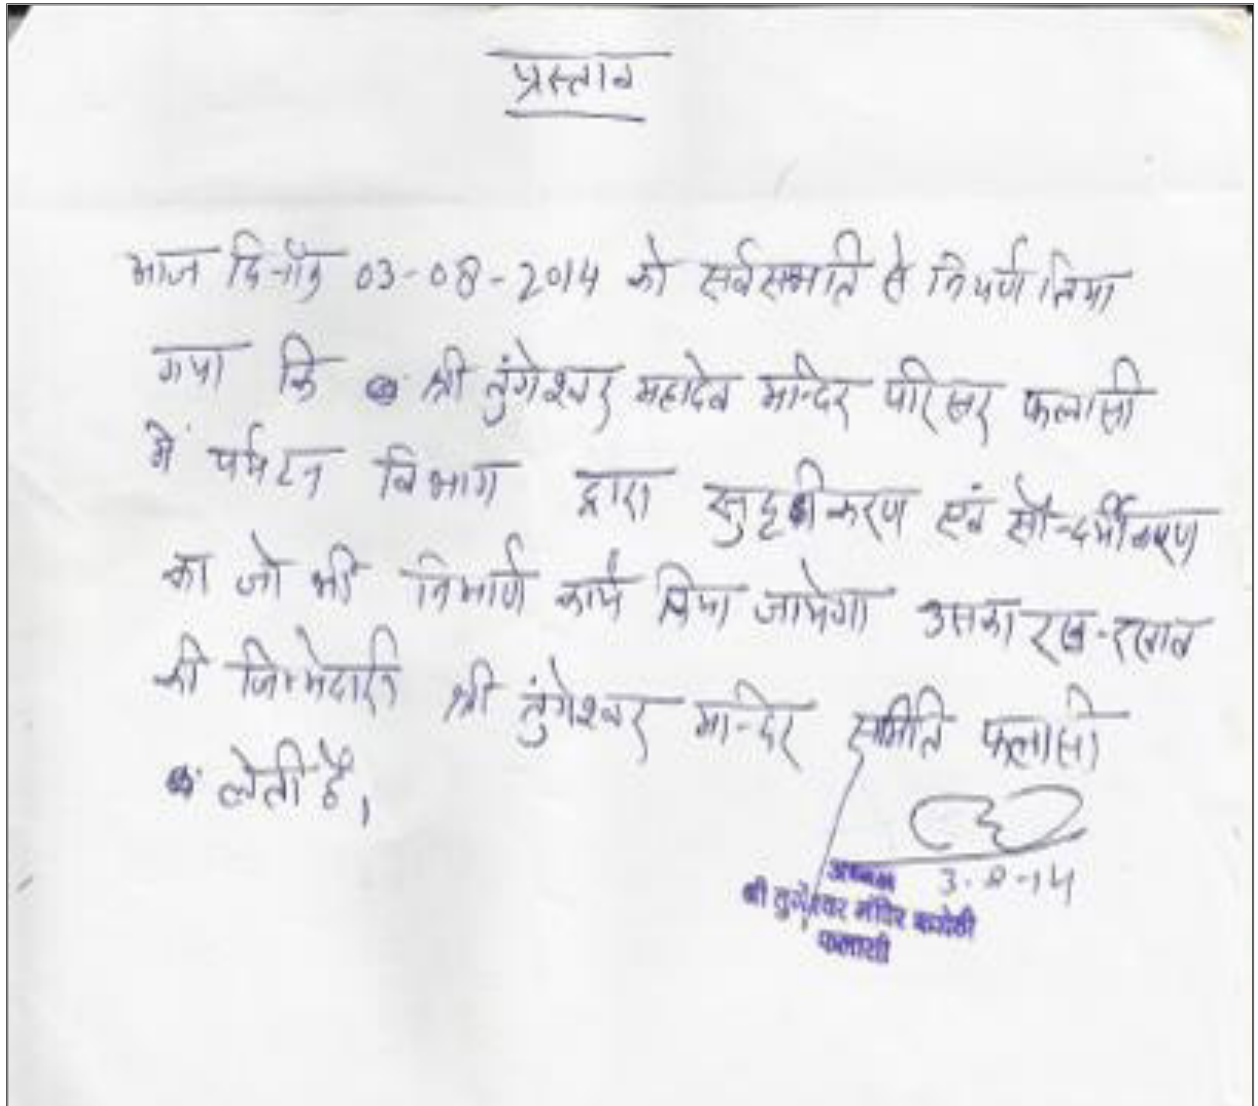 प्रस्ताव
आज दिनाँक 03-08-2014 को सर्वसम्मति से निर्णय लिया
गया कि श्री तुंगेश्वर महादेव मन्दिर परिसर फलासी
में पर्यटन विभाग द्वारा सुदृढ़ीकरण एवं सौन्दर्यीकरण
का जो भी निर्माण कार्य किया जायेगा उसका रख-रखाव
की जिम्मेदारी श्री तुंगेश्वर मन्दिर समिति फलासी
लेती है,
3-8-14
अध्यक्ष
श्री तुंगेश्वर मंदिर कमेटी
फलासी